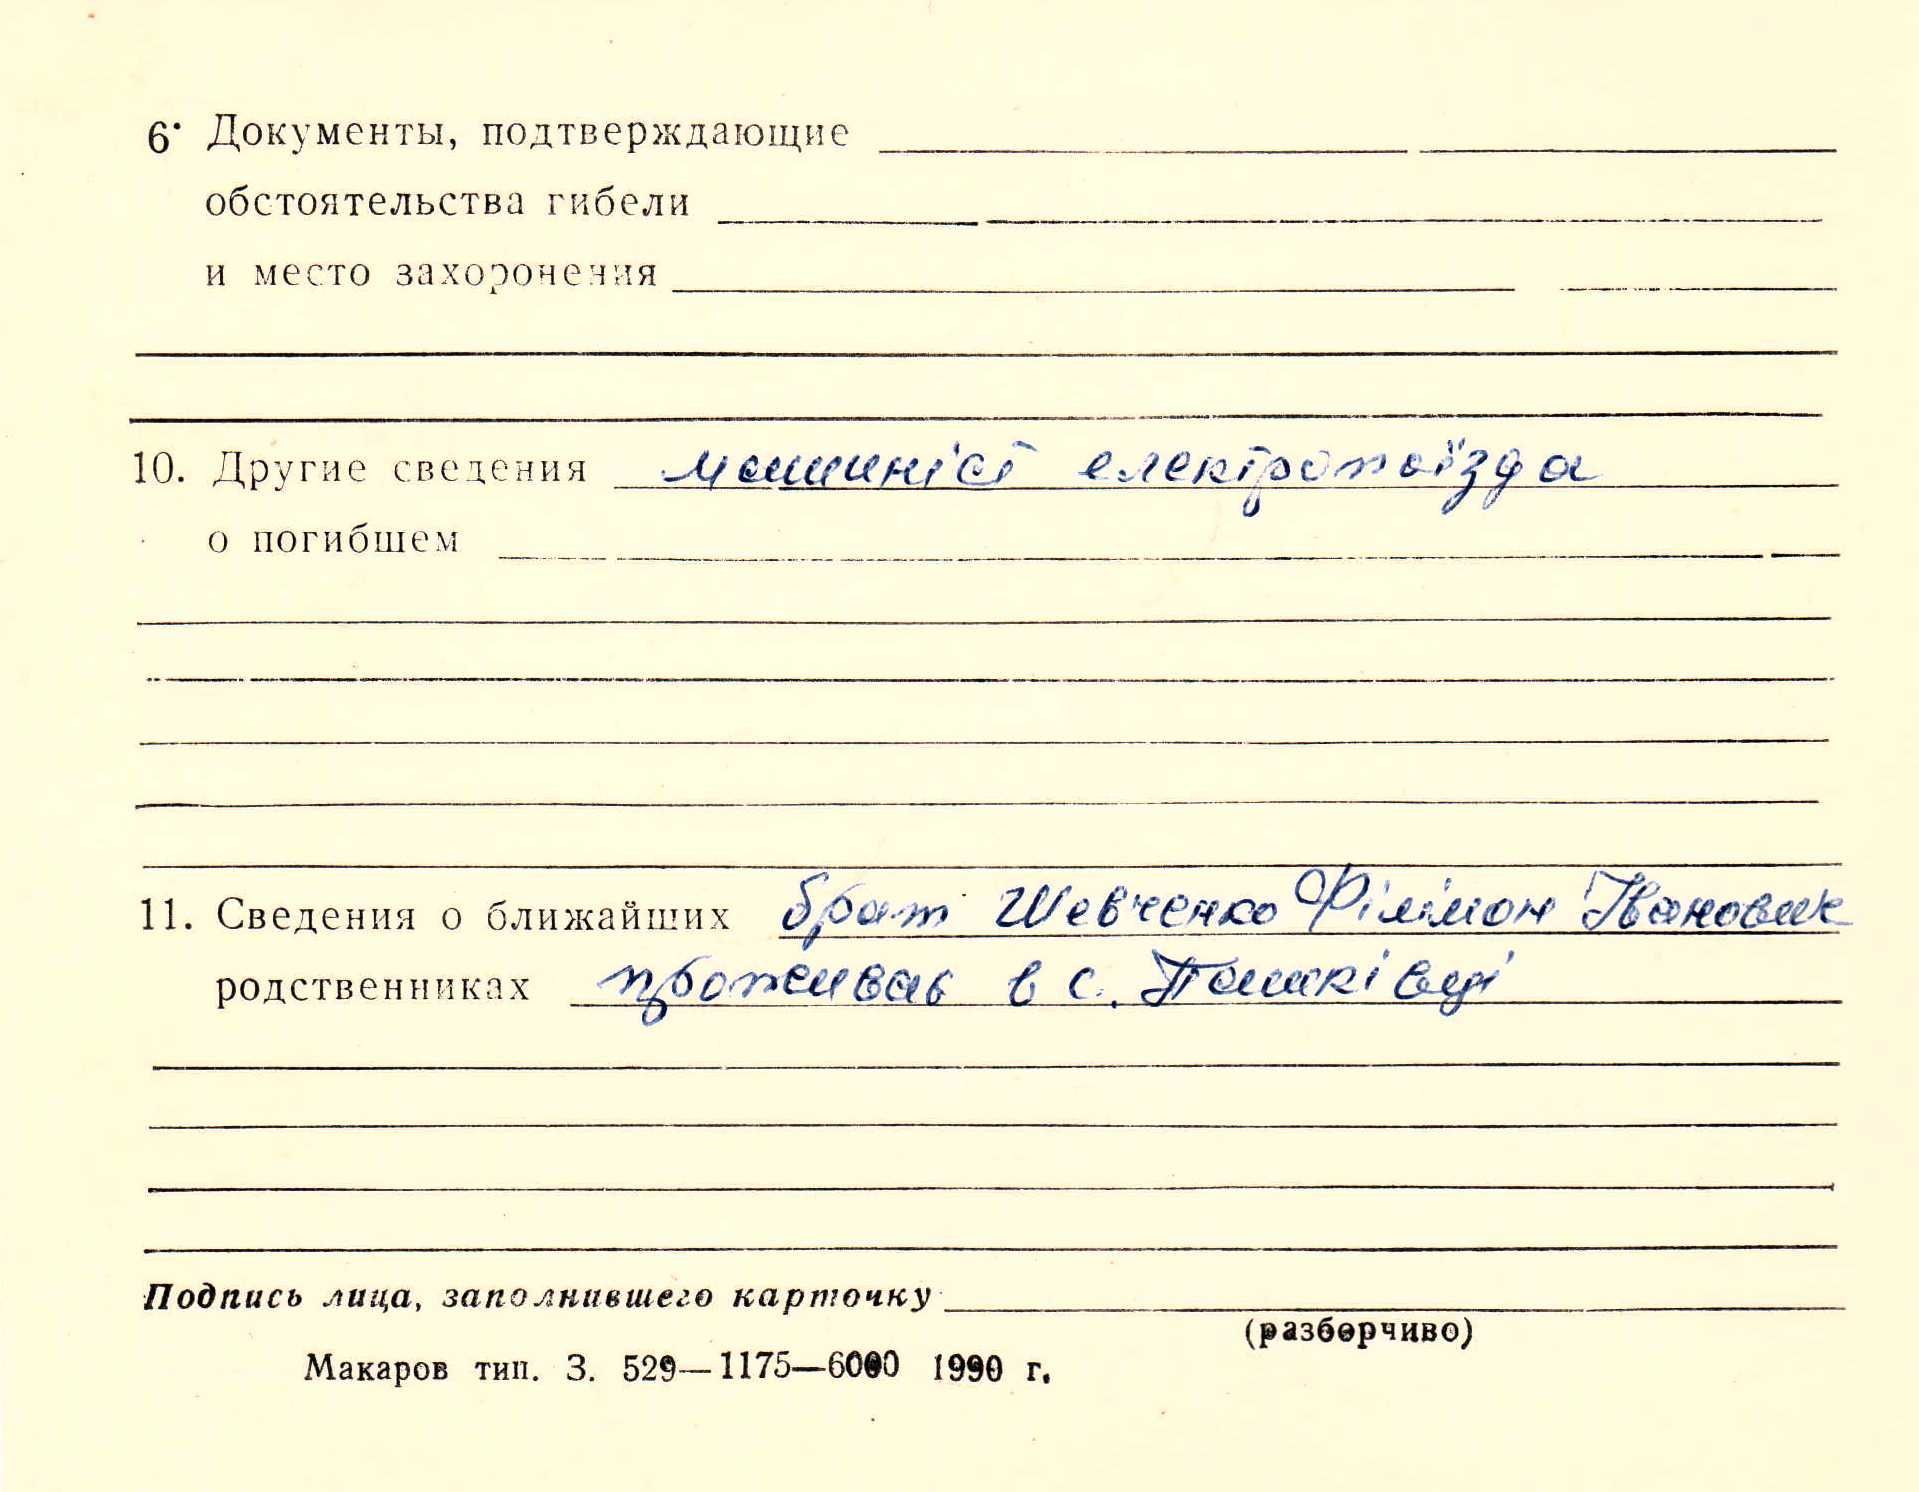 6. Документы, подтверждающие
обстоятельства гибели
и место захоронения
10. Другие сведения машиніст електропоїзда
о погибшем
11. Сведения о ближайших брат Шевченко Філімон Іванович
родственниках проживав в с. Пашківці
Подпись лица, заполнившего карточку
(разборчиво)
Макаров тип. З. 529—1175—6000 1990 г.